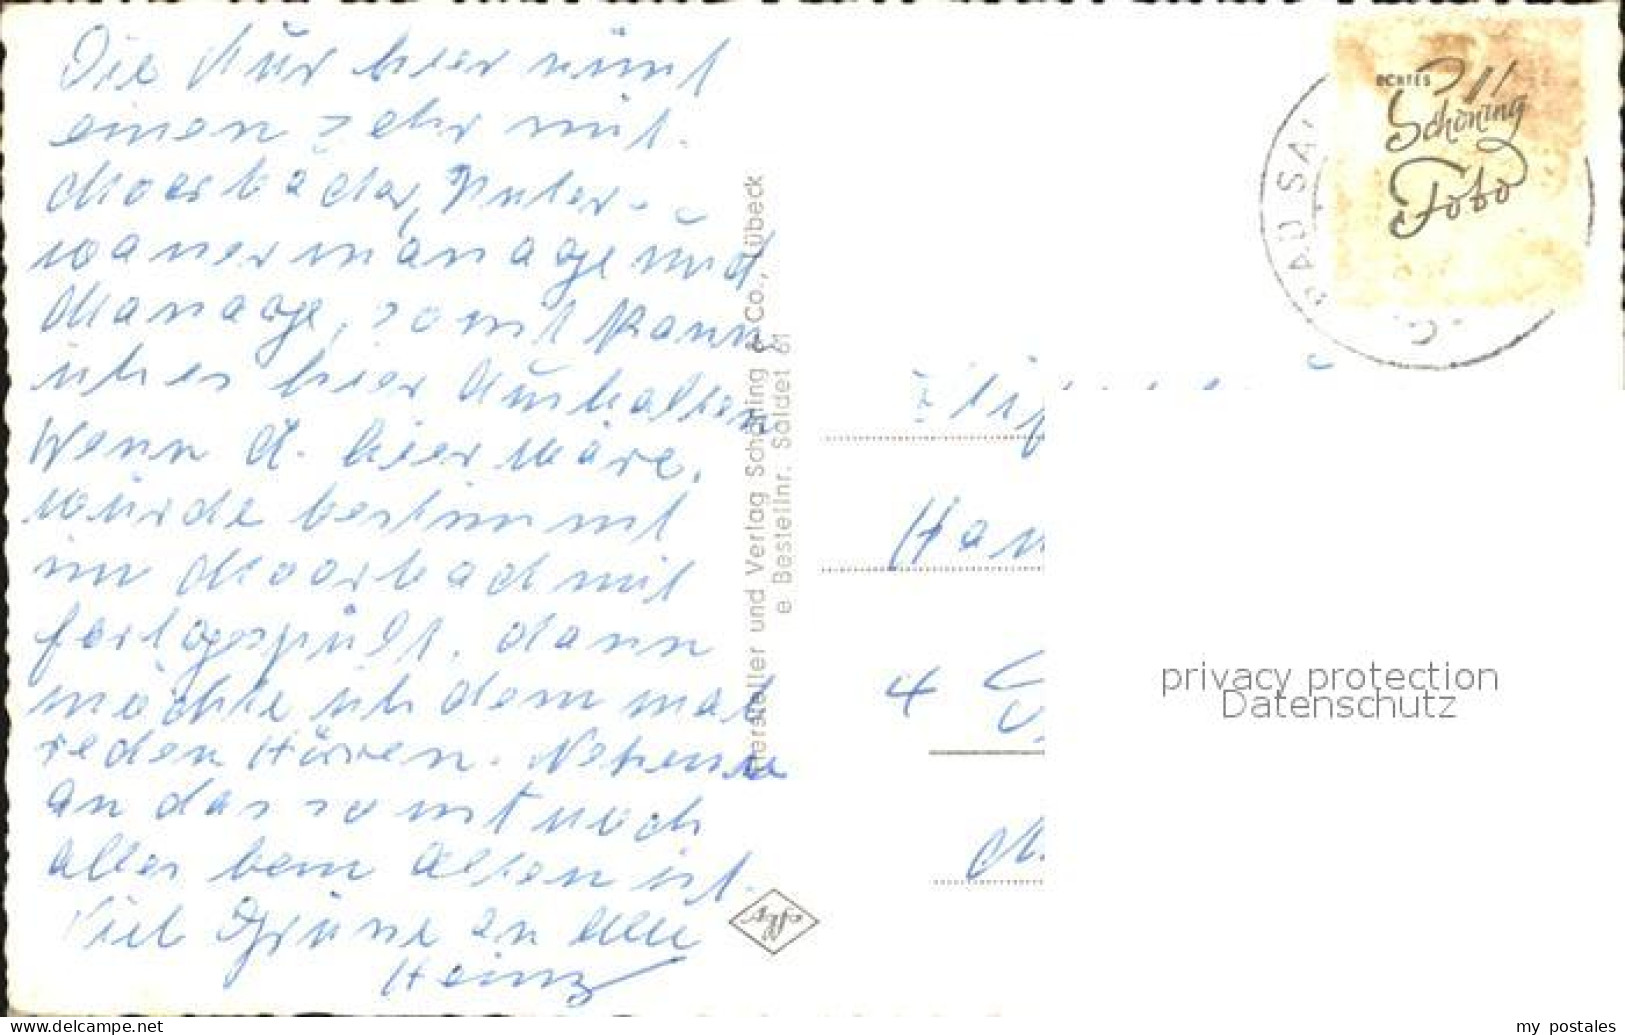 Die Kur hier nimt
einen sehr mit.
Moorbäder, Unter-
wassermassage und
Massage, somit kann
ich es hier aushalten
Wenn A. hier wäre,
würde bestimmt
im Moorbad mit
fortgespült, dann
möchte ich dem mal
reden hören. Nehme
an das sonst noch
alles beim alten ist.
Viel Grüße an alle
Heinz
Hersteller und Verlag Schöning & Co., Lübeck
e Bestellnr. Saldet 61
Agfa
ECHTES
Schöning
Foto
BAD SA
Ham
4
privacy protection
Datenschutz
www.delcampe.net
my_postales